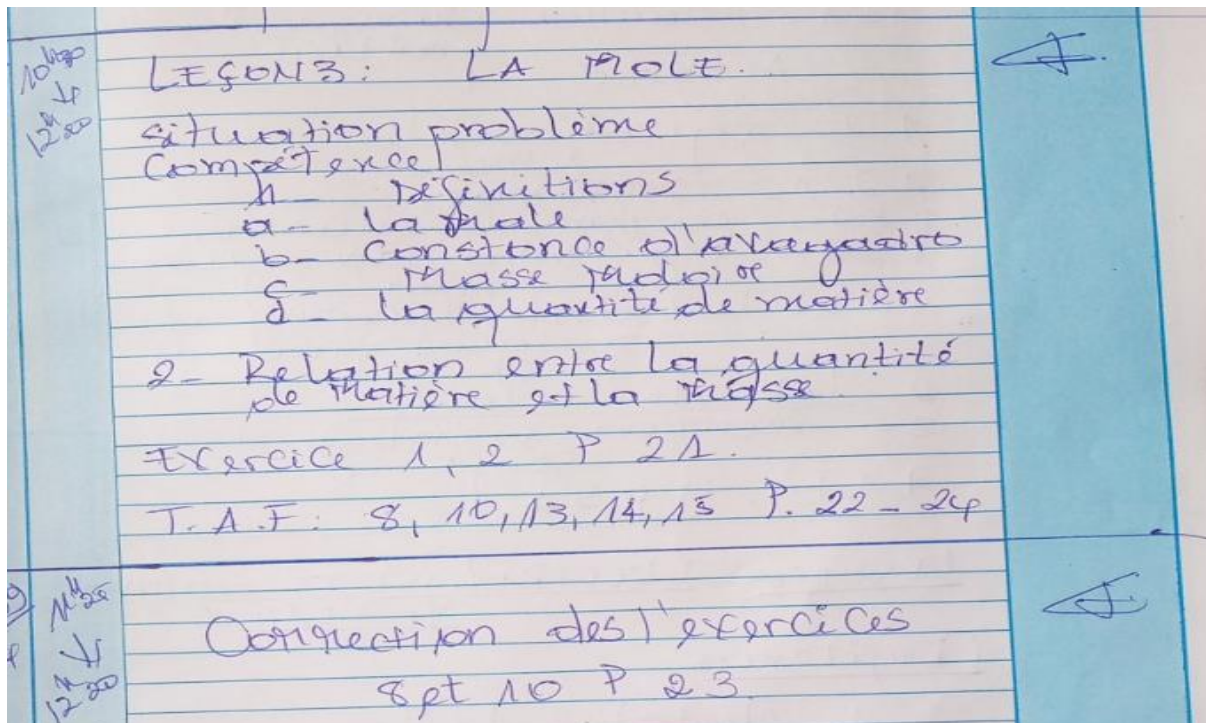 10h30
12h20
LEÇON3: LA MOLE.
situation problème
Compétence
1- Définitions
a- la mole
b- Constance d'avogadro
c- Masse Molaire
d- la quantité de matière
2- Relation entre la quantité
de Matière et la Masse.
Exercice 1, 2 P 21.
T.A.F: 8, 10, 13, 14, 15 P. 22-24
11h25
12h20
Correction des l'exercices
8 et 10 P 23